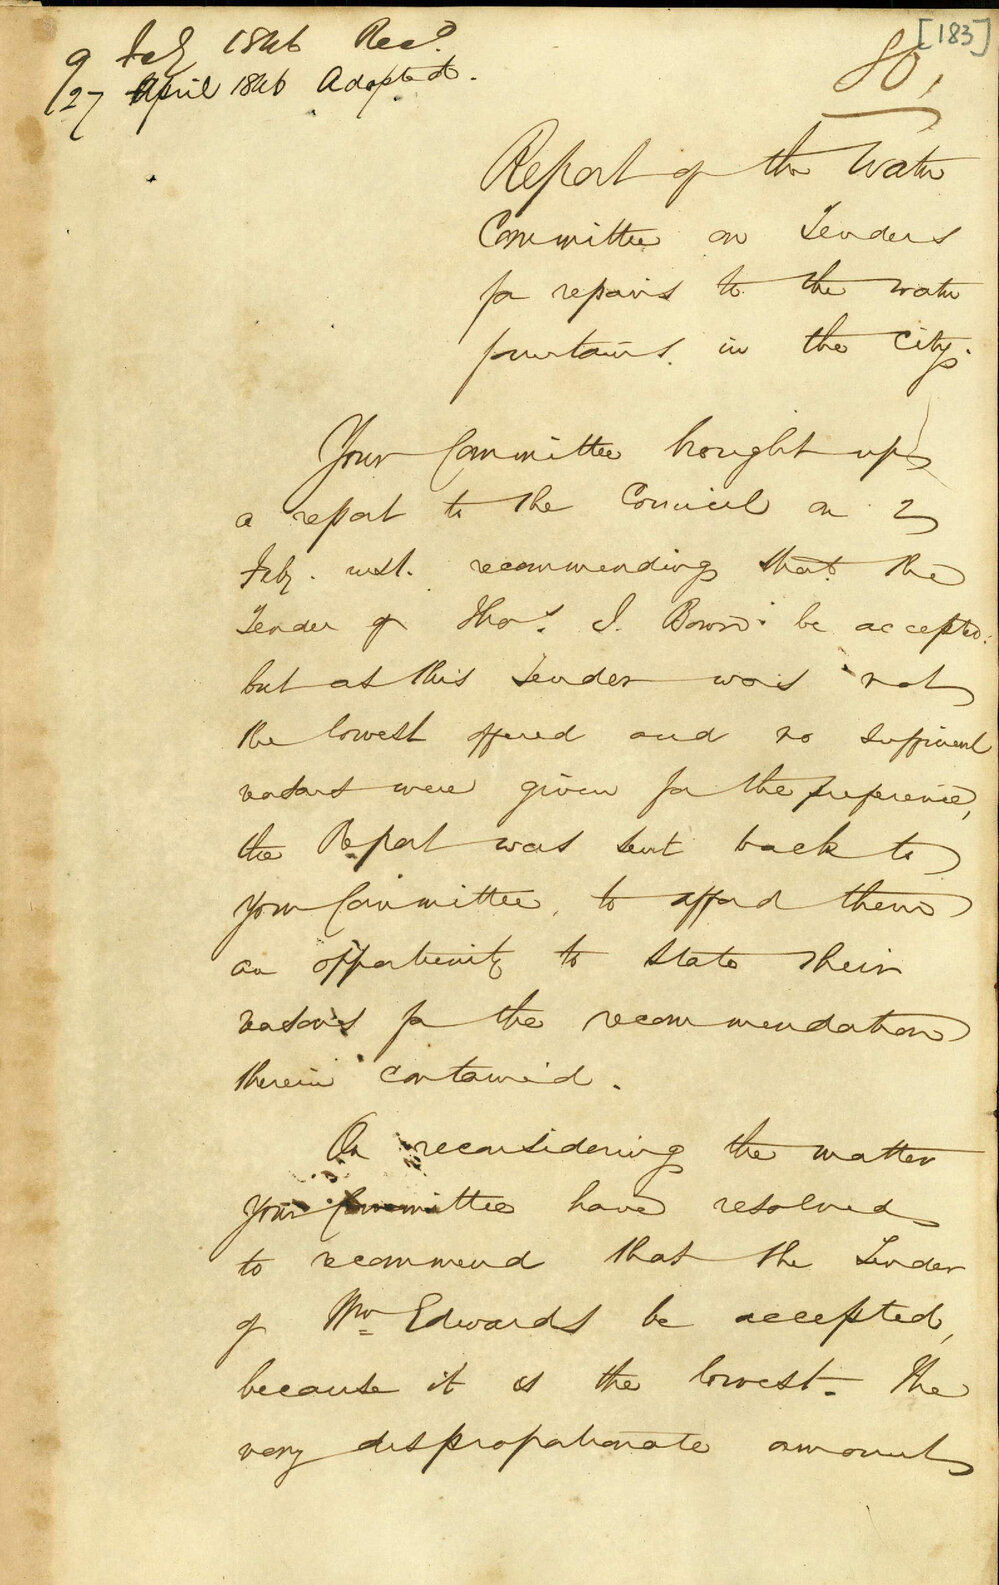 [183]
80,
9 Feby 1846 Recd.
27 April 1846 Adopted.
Report of the Water
Committee on Tenders
for repairs to the water
fountains in the City.
Your Committee brought up
a report to the Council on 2
Feby. inst. recommending that the
Tender of Thos. J. Bown be accepted:
but as this Tender was not
the lowest offered and no sufficient
reasons were given for the preference,
the Report was sent back to
your Committee, to afford them
an opportunity to state their
reasons for the recommendation
therein contained.
On reconsidering the matter
your Committee have resolved
to recommend that the Tender
of Mr Edwards be accepted,
because it is the lowest. The
very disproportionate amount